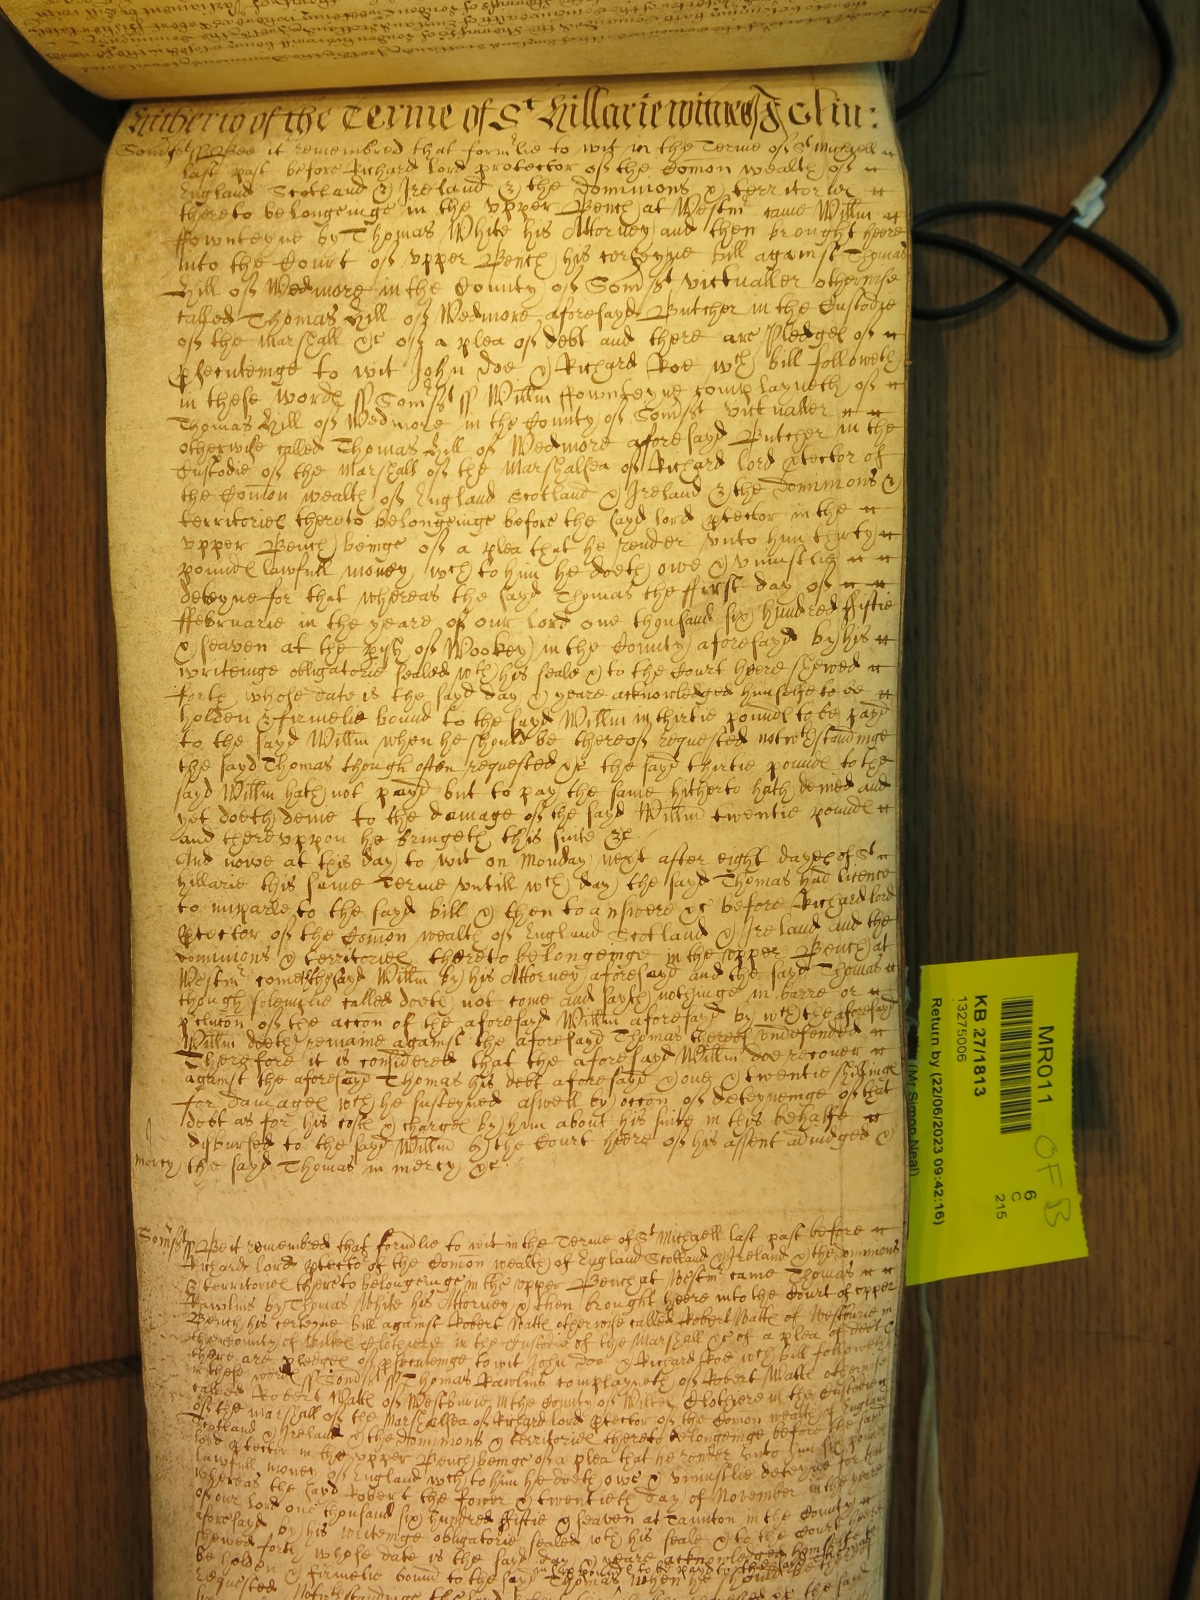 Hitherto of the Terme of St Hillarie witnes J Glin:
Somst ss Bee it remembred that form̃lie to wit in the Terme of St Michaell
last past before Richard lord protector of the Com̃on wealth of
England Scotland & Ireland & the Dominions & territories
thereto belongeinge in the vpper Bench at Westmr came Willm̃
ffownteyne by Thomas White his Attorney and then brought heere
into the Court of vpper Bench his certeyne bill against Thomas
Hill of Wedmore in the County of Somst victualler otherwise
called Thomas Hill of Wedmore aforesayd Butcher in the Custodie
of the Marshall &c of a plea of debt and there are pledges of
psecuteinge to wit John Doe & Richard Roe wch bill followeth
in these words ss Somst ss Willm̃ ffownteyne complayneth of
Thomas Hill of Wedmore in the County of Somst victualler
otherwise called Thomas Hill of Wedmore aforesayd Butcher in the
Custodie of the Marshall of the Marshalsea of Richard lord ptector of
the Com̃on wealth of England Scotland & Ireland & the Dominions &
territories thereto belongeinge before the sayd lord ptector in the
vpper Bench beinge of a plea that he render vnto him thirty
pounds lawfull money wch to him he doeth owe & vniustlie
deteyne for that whereas the sayd Thomas the ffirst day of
ffebruarie in the yeare of our lord one thousand six hundred fiftie
& seaven at the pish of Wookey in the County aforesayd by his
writeinge obligatorie sealed wth his seale & to the Court heere shewed
forth whose date is the sayd day & yeare acknowledged himselfe to be
holden & firmelie bound to the sayd Willm̃ in thirtie pounds to be payd
to the sayd Willm̃ when he should be thereof requested notwthstandinge
the sayd Thomas though often requested &c the sayd thirtie pounds to the
sayd Willm̃ hath not payd but to pay the same hitherto hath denied and
yet doeth denie to the damage of the sayd Willm̃ twentie pounds
and therevppon he bringeth this suite &c
And nowe at this day to wit on Monday next after eight dayes of St
Hillarie this same Terme vntill wch day the sayd Thomas had licence
to imparle to the sayd bill & then to answere &c before Richard lord
ptector of the Com̃on wealth of England Scotland & Ireland and the
dominions & territories thereto belongeinge in the vpper Bench at
Westmr cometh the sayd Willm̃ by his Attorney aforesayd and the sayd Thomas
though solemplie called doeth not come and sayth nothinge in barre or
pclusion of the accon of the aforesayd Willm̃ aforesayd by wch the aforesayd
Willm̃ doeth remaine against the aforesayd Thomas thereof vndefended
Therefore it is considered that the aforesayd Willm̃ doe recover
against the aforesayd Thomas his debt aforesayd & one & twentie shillings
for damages wch he susteyned aswell by occon of deteyneinge of that
debt as for his costs & charges by him about his suite in this behalfe
disbursed to the sayd Willm̃ by the Court heere of his assent adiudged &
mercy the sayd Thomas in mercy &c
Somst ss Be it remembred that form̃lie to wit in the Terme of St Michaell last past before
Richard lord ptector of the Com̃on wealth of England Scotland & Ireland & the dominions
& territories thereto belongeinge in the vpper Bench at Westmr came Thomas
Rawlins by Thomas White his Attorney & then brought heere into the Court of vpper
Bench his certeyne bill against Robert Watts otherwise called Robert Watts of Westburie in
the County of Wiltes Clothiere in the Custodie of the Marshall &c of a plea of debt &
there are pledges of psecuteinge to wit John Doe & Richard Roe wch bill followeth
in these words ss Somst ss Thomas Rawlins complayneth of Robert Watts otherwise
called Robert Watts of Westburie in the County of Wiltes Clothiere in the Custodie
of the Marshall of the Marshalsea of Richard lord ptector of the Com̃on wealth of England
Scotland & Ireland & the Dominions & territories thereto belongeinge before the sayd
lord ptector in the vpper Bench beinge of a plea that he render vnto him six pounds
lawfull money of England wch to him he doeth owe & vniustlie deteyne for that
whereas the sayd Robert the fower & twentieth day of November in the yeare
of our lord one thousand six hundred fiftie & seaven at Taunton in the County
aforesayd by his writeinge obligatorie sealed wth his seale & to the Court heere
shewed forth whose date is the sayd day & yeare acknowledged himselfe to
be holden & firmelie bound to the sayd Thomas when he should be thereof
requested Notwthstandinge
MR011
KB 27/1813
13275006
Return by (22/06/2023 09:42:16)
(Mr Simon Neal)
6
C
215
OF B